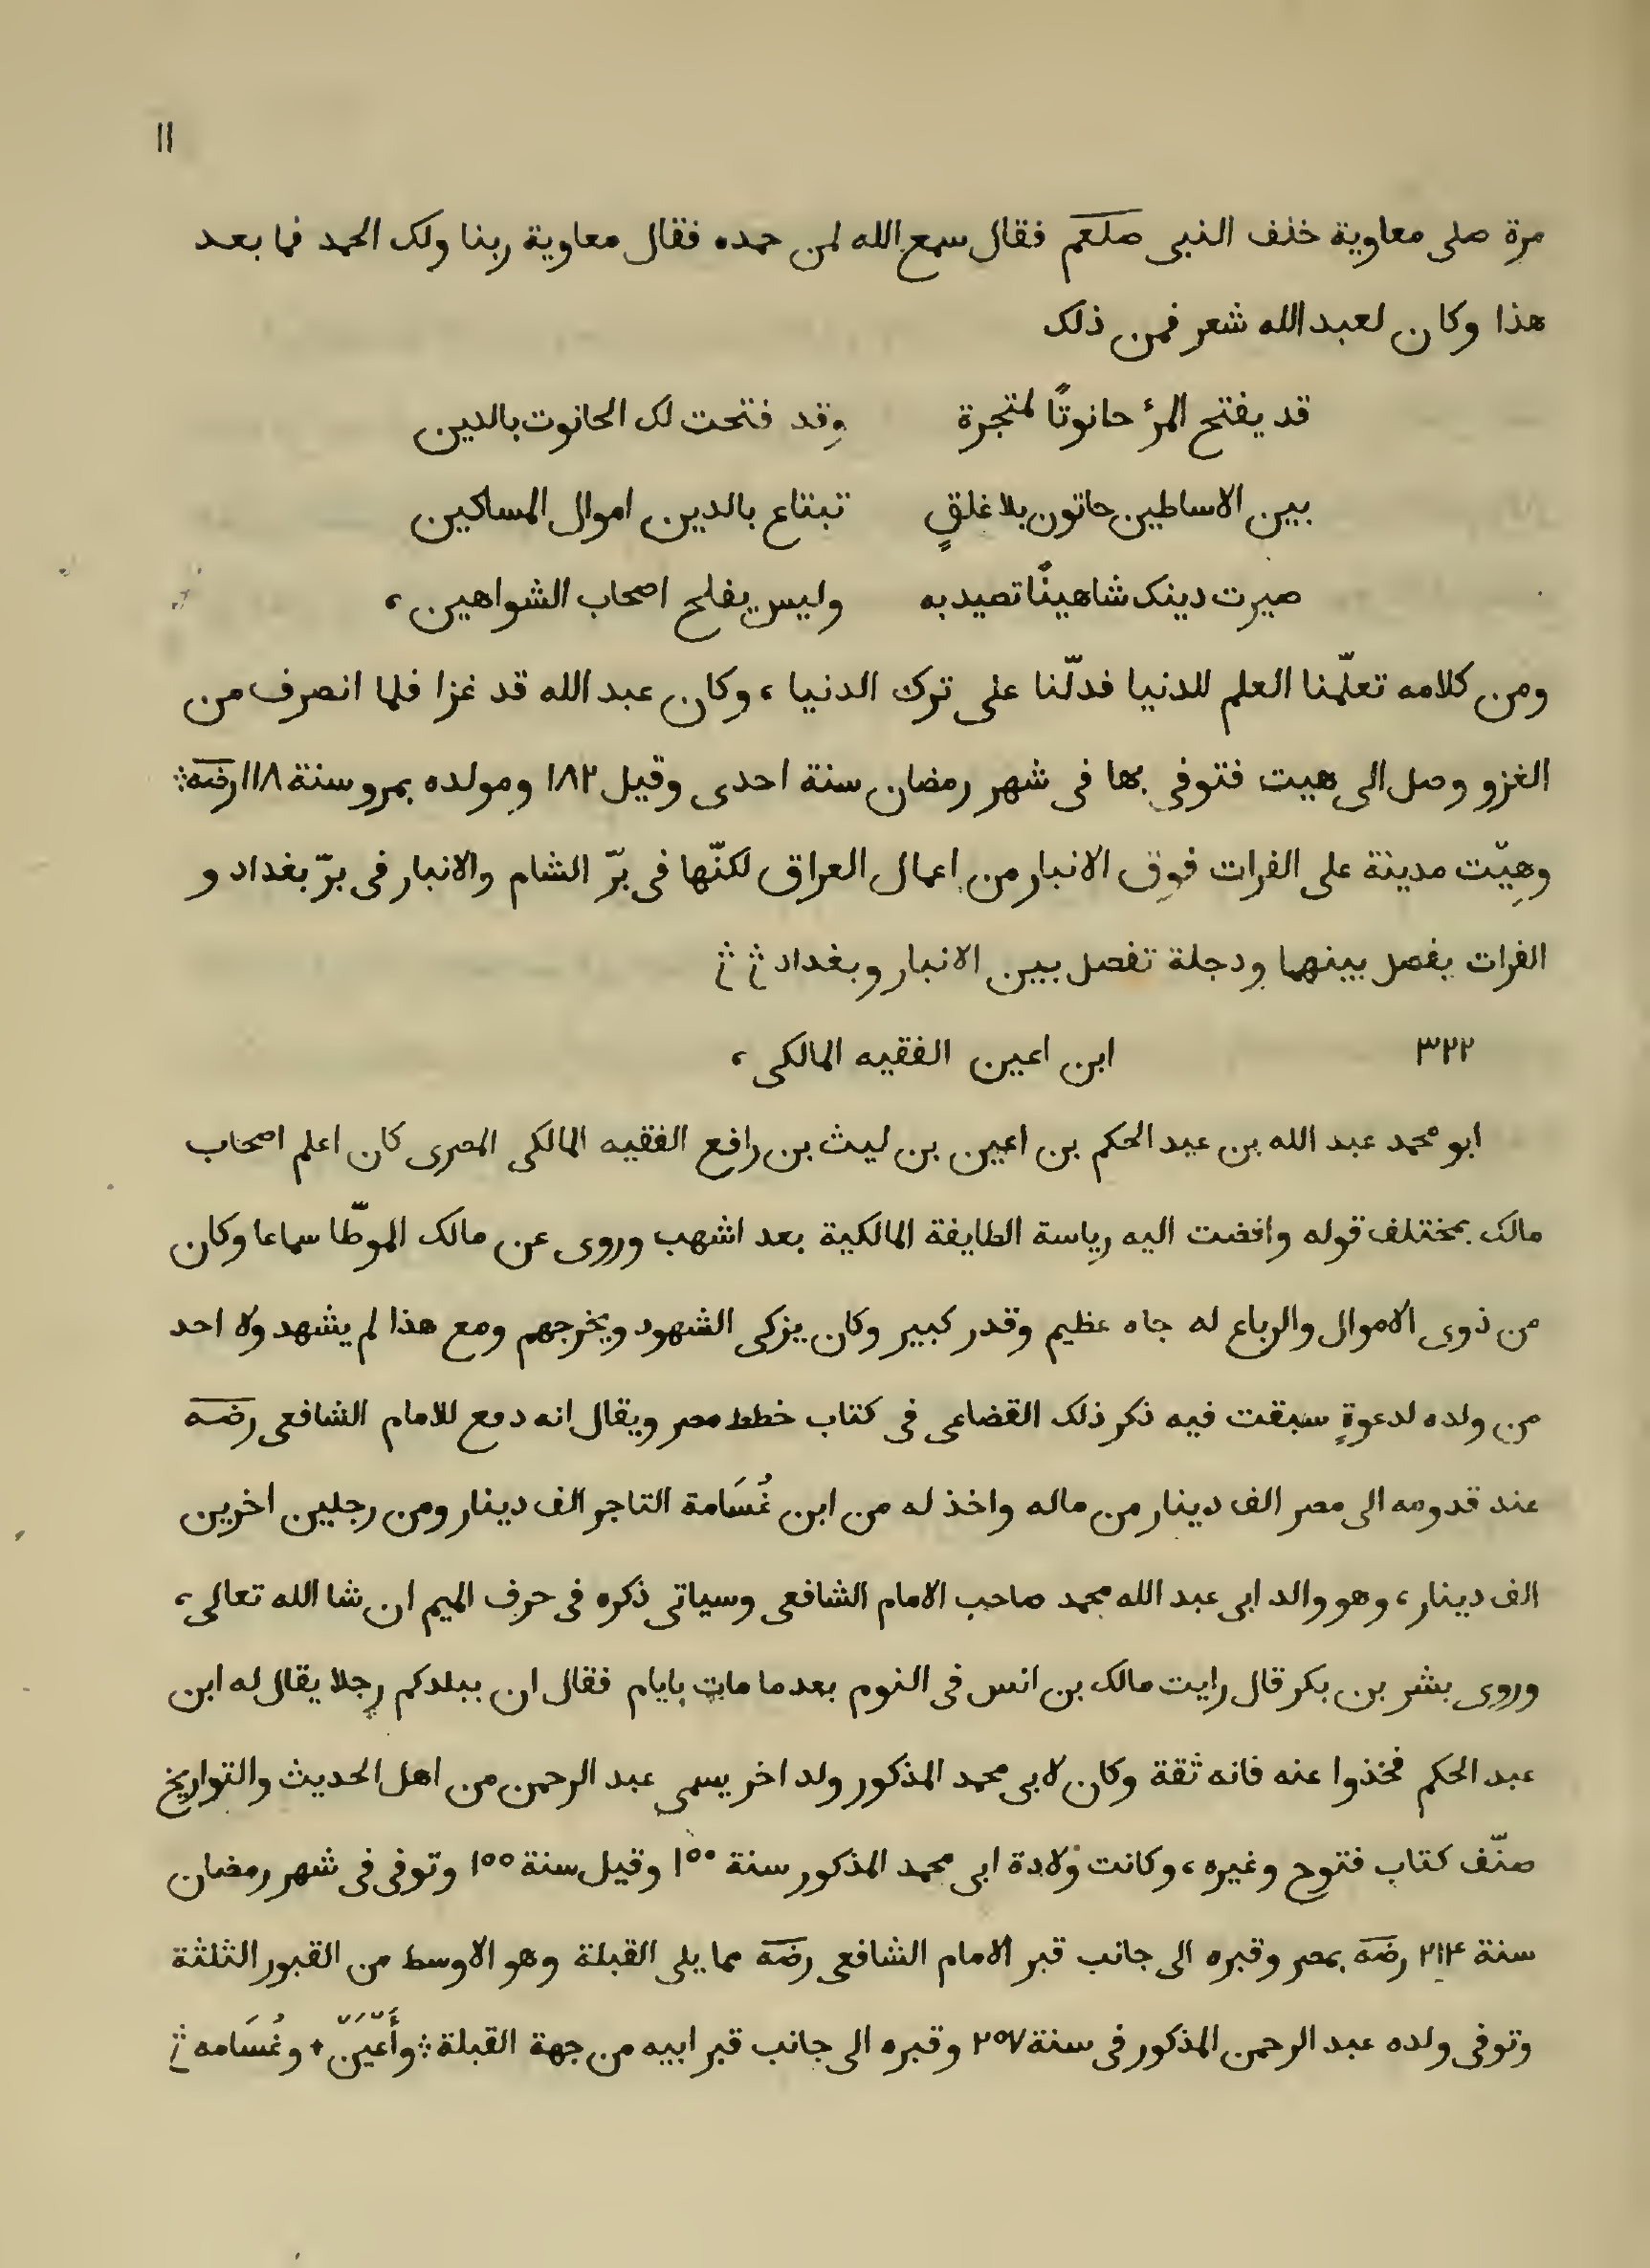 ١١
مرة صلى معاوية خلف النبى صلعم فقال سمع الله لمن حمده فقال معاوية ربنا ولك الحمد فما بعد
هذا وكان لعبد الله شعر فمن ذلك
قد يفتح المرء حانوتًا لمتجرة وقد فتحت لك الحانوت بالدين
بين الاساطين حاتون بلا غلقٍ تبتاع بالدين اموال المساكين
صيرت دينك شاهينًا تصيد به وليس يفلح اصحاب الشواهين ،
ومن كلامه تعلّمنا العلم للدنيا فدلّنا على ترك الدنيا ، وكان عبد الله قد غزا فلما انصرف من
الغزو وصل الى هيت فتوفى بها فى شهر رمضان سنة احدى وقيل ١٨٢ ومولده بمرو سنة ١١٨ رضه
وهِيّت مدينة على الفرات فوق الانبار من اعمال العراق لكنّها فى برّ الشام والانبار فى برّ بغداد و
الفرات يفصل بينهما ودجلة تفصل بين الانبار وبغداد
٣٢٢ ابن اعين الفقيه المالكى ،
ابو محمد عبد الله بن عبد الحكم بن اعين بن ليث بن رافع الفقيه المالكى المصرى كان اعلم اصحاب
مالك بمختلف قوله وافضت اليه رياسة الطايفة المالكية بعد اشهب وروى عن مالك الموطّا سماعا وكان
من ذوى الاموال والرباع له جاه عظيم وقدر كبير وكان يزكى الشهود ويخرجهم ومع هذا لم يشهد ولا احد
من ولده لدعوةٍ سبقت فيه ذكر ذلك القضاعى فى كتاب خطط مصر ويقال انه دفع للامام الشافعى رضه
عند قدومه الى مصر الف دينار من ماله واخذ له من ابن عُسَامة التاجر الف دينار ومن رجلين اخرين
الف دينار ، وهو والد ابى عبد الله محمد صاحب الامام الشافعى وسياتى ذكره فى حرف الميم ان شا الله تعالى ،
وروى بشر بن بكر قال رايت مالك بن انس فى النوم بعد ما مات بايام فقال ان ببلدكم رجلا يقال له ابن
عبد الحكم فخذوا عنه فانه ثقة وكان لابى محمد المذكور ولد اخر يسمى عبد الرحمن من اهل الحديث والتواريخ
صنّف كتاب فتوح وغيره ، وكانت ولادة ابى محمد المذكور سنة ١٥٠ وقيل سنة ١٥٥ وتوفى فى شهر رمضان
سنة ٢١٤ رضه بمصر وقبره الى جانب قبر الامام الشافعى رضه مما يلى القبلة وهو الاوسط من القبور الثلثة
وتوفى ولده عبد الرحمن المذكور فى سنة ٢٥٧ وقبره الى جانب قبر ابيه من جهة القبلة وأَعّيَنّ وعُسَامه